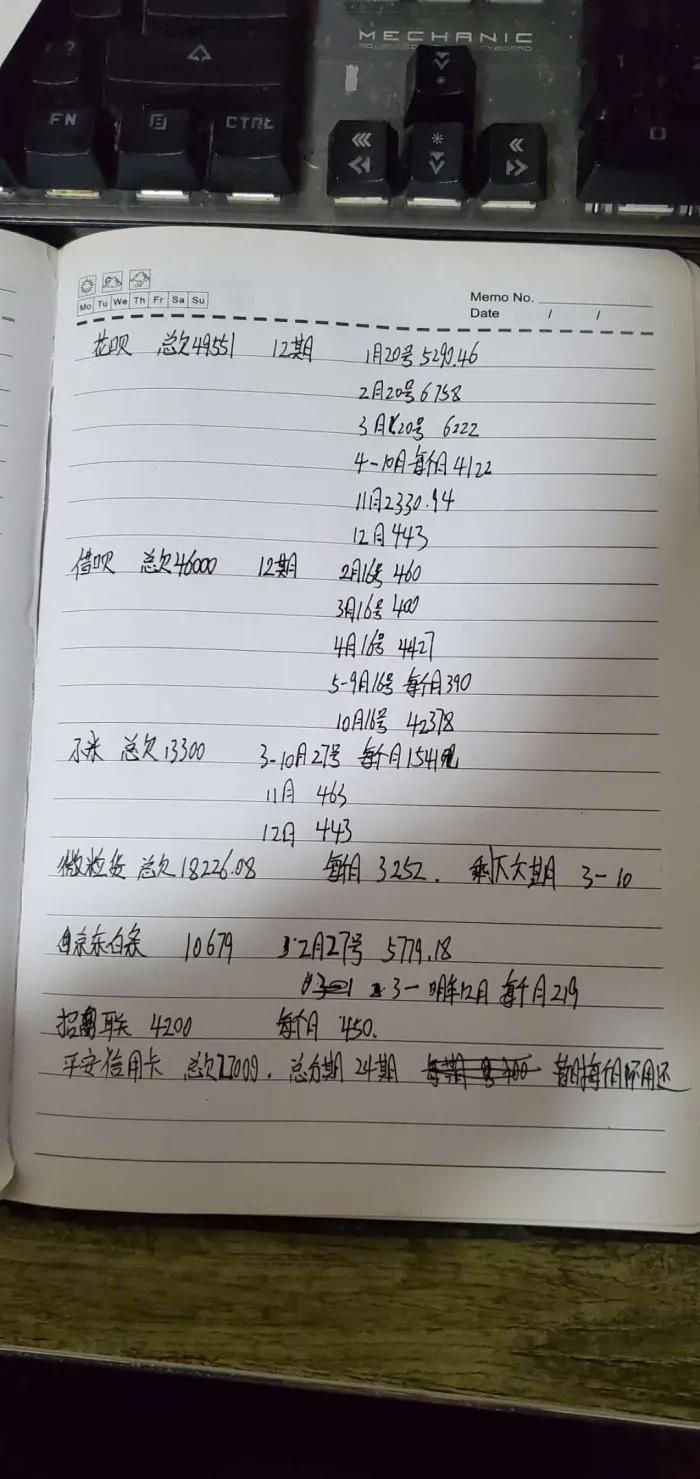 MECHANIC
FN
CTRL
Mo Tu We Th Fr Sa Su
Memo No.
Date / /
花呗 总欠49551 12期 1月20号 5290.46
2月20号 6758
3月20号 6222
4-10月 每个月 4122
11月 2330.94
12月 443
借呗 总欠46000 12期 2月16号 460
3月16号 400
4月16号 4427
5-9月16号 每个月390
10月16号 42378
小米 总欠13300 3-10月27号 每个月1541
11月 463
12月 443
微粒贷 总欠18226.08 每月 3252. 剩下六期 3-10
京东白条 10679 2月27号 5779.18
3-明年12月 每个月219
招联 4200 每个月 450.
平安信用卡 总欠27009. 总分期 24期 每期 暂时每个月不用还